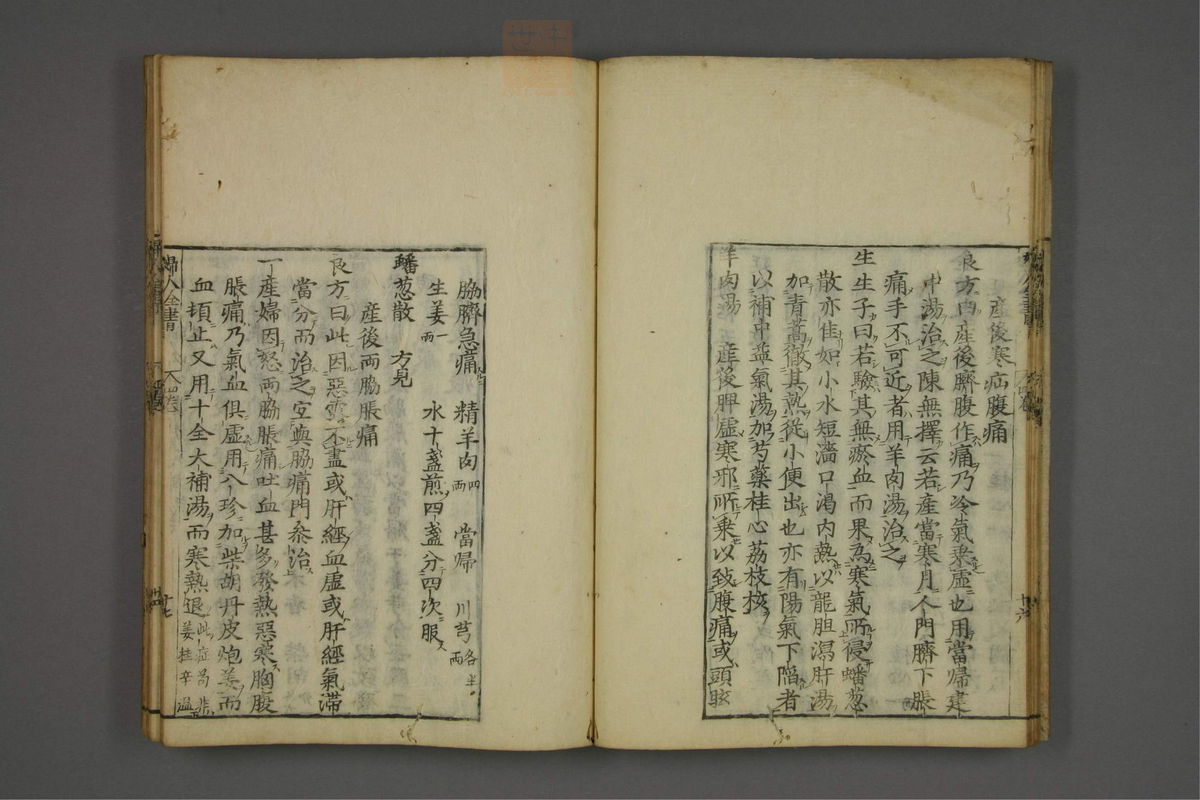 產後寒疝腹痛
良方曰產後臍腹作痛乃冷氣乘虛也用當歸建
中湯治之陳無擇云若產當寒月入門臍下脹
痛手不可近者用羊肉湯治之
生生子曰若驗其無瘀血而果為寒氣所侵蟠葱
散亦佳如小水短濇口渴內熱以龍胆瀉肝湯
加青蒿徹其熱從小便出也亦有陽氣下陷者
以補中益氣湯加芍藥桂心荔枝核
羊肉湯 產後脾虛寒邪所乘以致腹痛或頭眩
脇臍急痛 精羊肉四兩 當歸 川芎各半兩
生姜一兩 水十盞煎四盞分四次服
蟠葱散 方見
產後兩脇脹痛
良方曰此因惡露不盡或肝經血虛或肝經氣滯
當分而治之宜與脇痛門叅治
一產婦因怒兩脇脹痛吐血甚多發熱惡寒胸腹
脹痛乃氣血俱虛用八珍加柴胡丹皮炮姜而
血頓止又用十全大補湯而寒熱退此症苟非姜桂辛溫
婦人全書